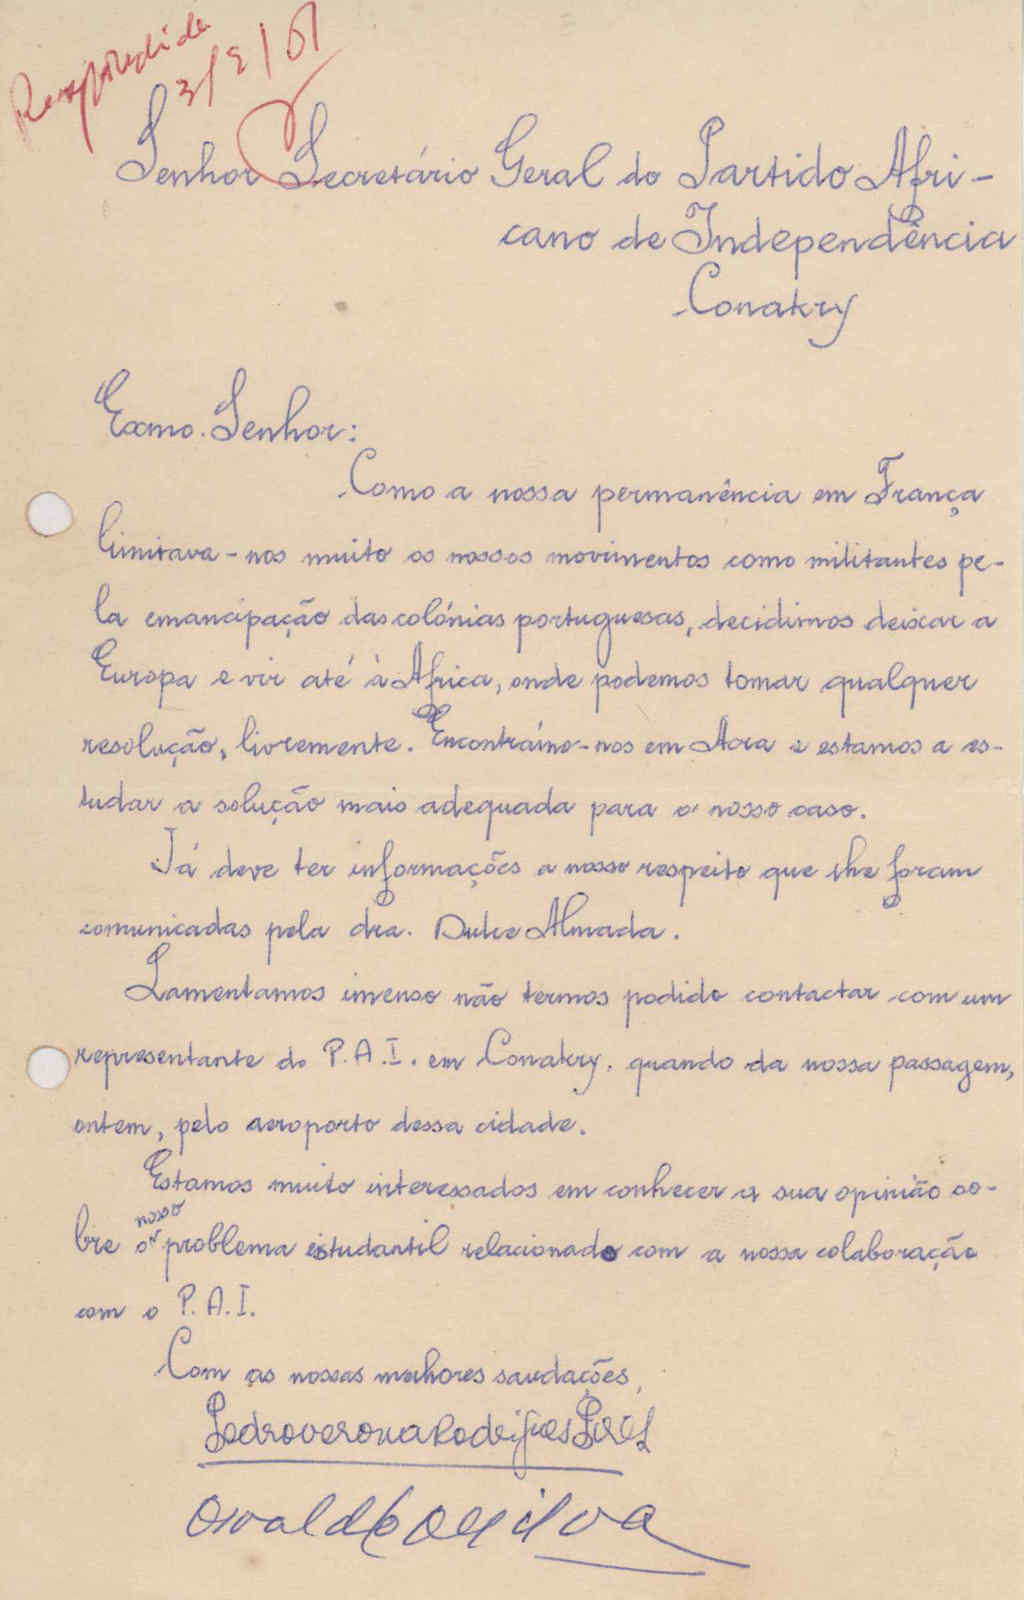 Respondida
3/3/61
Senhor Secretário Geral do Partido Afri-
cano de Independência
Conakry
Exmo. Senhor:
Como a nossa permanência em França
limitava-nos muito os nossos movimentos como militantes pe-
la emancipação das colónias portuguesas, decidimos deixar a
Europa e vir até à Africa, onde podemos tomar qualquer
resolução, livremente. Encontramo-nos em Acra e estamos a es-
tudar a solução mais adequada para o nosso caso.
Já deve ter informações a nosso respeito que lhe foram
comunicadas pela dra. Dulce Almada.
Lamentamos imenso não termos podido contactar com um
representante do P.A.I. em Conakry, quando da nossa passagem,
ontem, pelo aeroporto dessa cidade.
Estamos muito interessados em conhecer a sua opinião so-
bre o nosso problema estudantil relacionado com a nossa colaboração
com o P.A.I.
Com as nossas melhores saudações,
Pedro Verona Rodrigues Pires
Osvaldo da Silva